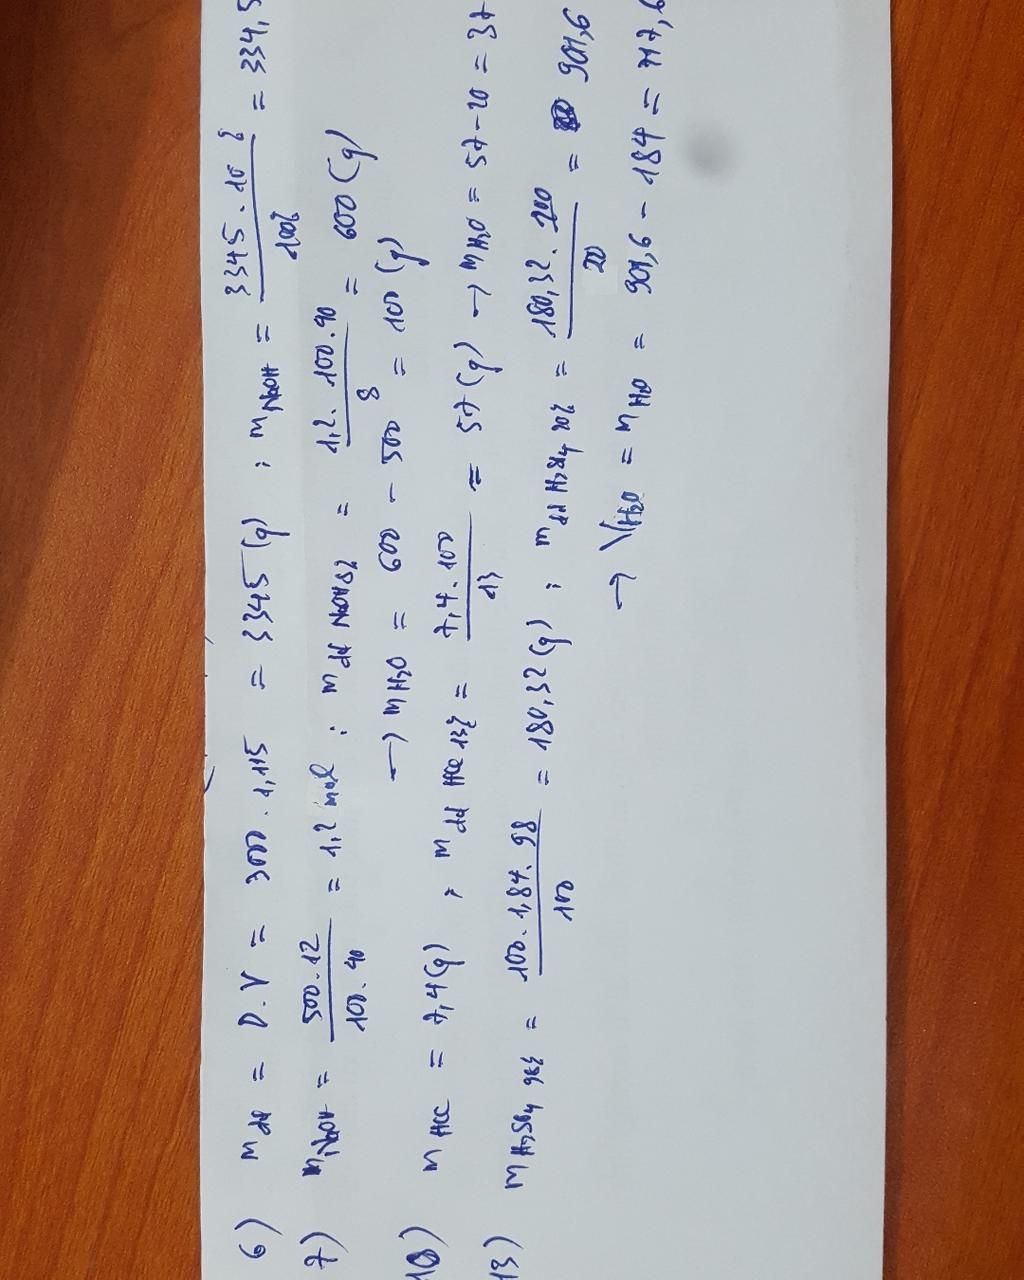 6) m dd = D.V = 3000 . 1,115 = 3345 (g) ; m NaOH = \frac{3345 . 10 %}{100%} = 334,5
7) m NaOH = \frac{500 . 12}{100 . 40} = 1,2 mol ; m dd NaOH 8% = \frac{1,2 . 100 . 40}{8} = 600 (g)
→ m H2O = 600 - 500 = 100 (g)
10) m HCl = 7,4 (g) , m dd HCl 13% = \frac{7,4 . 100}{13} = 57 (g) → m H2O = 57 - 20 = 37
13) m H2SO4 98% = \frac{100 . 1,84 . 98}{100} = 180,32 (g) ; m dd H2SO4 20% = \frac{180,32 . 100}{20} = 901,6
→ V H2O = m H2O = 901,6 - 184 = 717,6